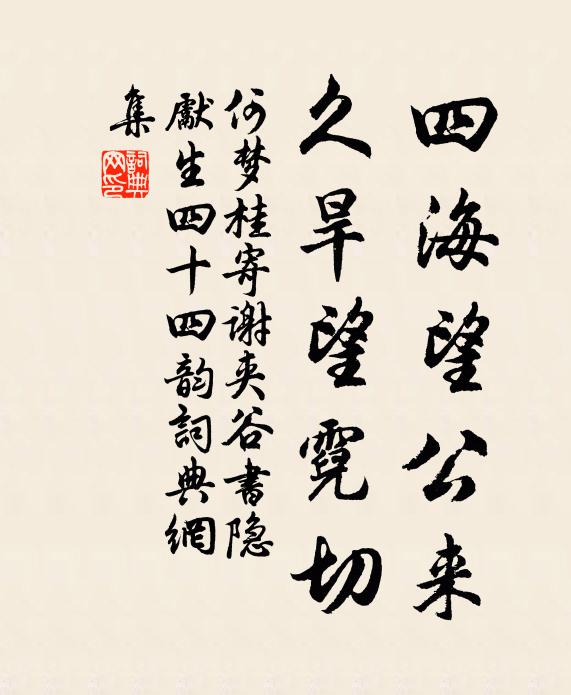 四海望公来
久旱望霓切
何梦桂寄谢夹谷书隐
献生四十四韵词典網
集
詞典
网印